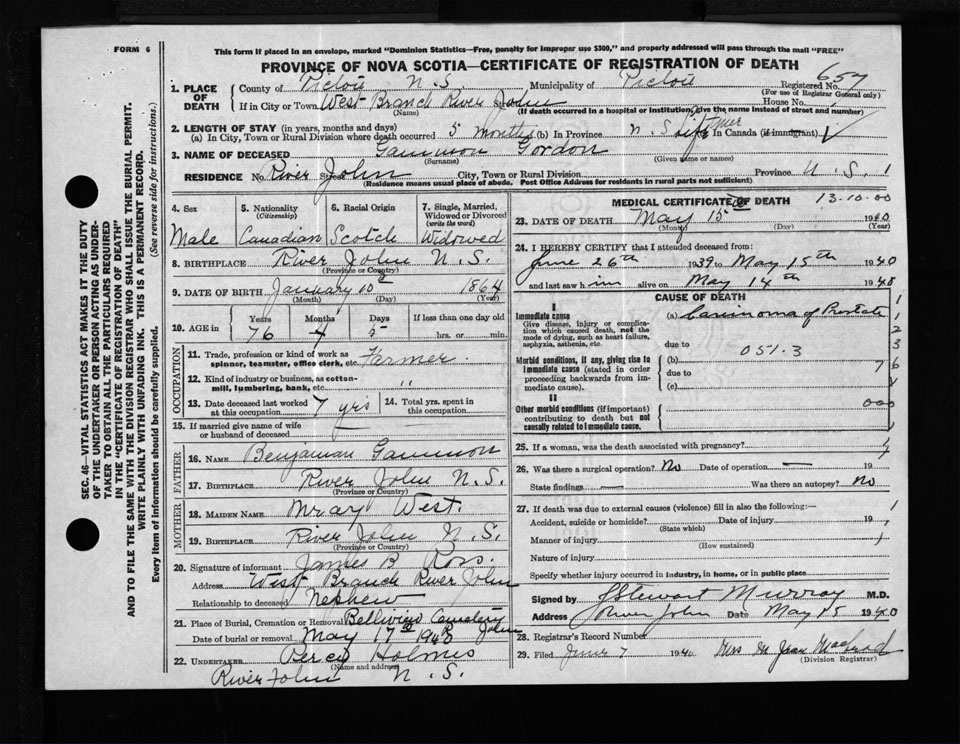 FORM 6
This form if placed in an envelope, marked "Dominion Statistics—Free, penalty for improper use $300," and properly addressed will pass through the mail "FREE"
PROVINCE OF NOVA SCOTIA—CERTIFICATE OF REGISTRATION OF DEATH
SEC. 46—VITAL STATISTICS ACT MAKES IT THE DUTY
OF THE UNDERTAKER OR PERSON ACTING AS UNDER-
TAKER TO OBTAIN ALL THE PARTICULARS REQUIRED
IN THE "CERTIFICATE OF REGISTRATION OF DEATH"
AND TO FILE THE SAME WITH THE DIVISION REGISTRAR WHO SHALL ISSUE THE BURIAL PERMIT.
WRITE PLAINLY WITH UNFADING INK. THIS IS A PERMANENT RECORD.
Every item of information should be carefully supplied. (See reverse side for instructions.)
1. PLACE OF DEATH County of Pictou N.S. Municipality of Pictou Registered No. 657
(For use of Registrar General only)
If in City or Town West Branch River John Street House No.
(Name) (If death occurred in a hospital or institution, give the name instead of street and number)
2. LENGTH OF STAY (in years, months and days)
(a) In City, Town or Rural Division where death occurred 5 months (b) In Province N.S. life time In Canada (if immigrant)
3. NAME OF DECEASED Gammon Gordon
(Surname) (Given name or names)
RESIDENCE No. River John Street City, Town or Rural Division Province N.S. 1
(Residence means usual place of abode. Post Office Address for residents in rural parts not sufficient)
4. Sex Male
5. Nationality (Citizenship) Canadian
6. Racial Origin Scotch
7. Single, Married, Widowed or Divorced (write the word) Widowed
8. BIRTHPLACE River John N.S.
(Province or Country)
9. DATE OF BIRTH January 10 1864
(Month) (Day) (Year)
10. AGE in Years 76 Months 4 Days 5 If less than one day old
hrs. or min.
OCCUPATION
11. Trade, profession or kind of work as spinner, teamster, office clerk, etc. Farmer
12. Kind of industry or business, as cotton-mill, lumbering, bank, etc. "
13. Date deceased last worked at this occupation 7 yrs
14. Total yrs. spent in this occupation
15. If married give name of wife or husband of deceased
FATHER
16. NAME Benjaman Gammon
17. BIRTHPLACE River John N.S.
(Province or Country)
MOTHER
18. MAIDEN NAME Mray West.
19. BIRTHPLACE River John N.S.
(Province or Country)
20. Signature of informant James B Ross
Address West Branch River John
Relationship to deceased Nephew
21. Place of Burial, Cremation or Removal Belliview Cemetery
Date of burial or removal May 17 1940 R John
22. UNDERTAKER Percy Holmes
(Name and address)
River John N.S.
MEDICAL CERTIFICATE OF DEATH 13.10.00
23. DATE OF DEATH May 15 1940
(Month) (Day) (Year)
24. I HEREBY CERTIFY that I attended deceased from:
June 26th 1939 to May 15th 1940
and last saw h im alive on May 14th 1940
CAUSE OF DEATH
I
Immediate cause
Give disease, injury or complication which caused death, not the mode of dying, such as heart failure, asphyxia, asthenia, etc.
(a) Carcinoma of Prostate
due to
Morbid conditions, if any, giving rise to immediate cause (stated in order proceeding backwards from immediate cause).
(b) 051.3
due to
(c)
II
Other morbid conditions (if important) contributing to death but not causally related to immediate cause.
25. If a woman, was the death associated with pregnancy?
26. Was there a surgical operation? No Date of operation — 19
State findings — Was there an autopsy? no
27. If death was due to external causes (violence) fill in also the following:—
Accident, suicide or homicide? Date of injury 19
(State which)
Manner of injury
(How sustained)
Nature of injury
Specify whether injury occurred in industry, in home, or in public place
Signed by J Stewart Murray M.D.
Address River John Date May 15 1940
28. Registrar's Record Number
29. Filed June 7 1940 Mrs M Jean MacLeod
(Division Registrar)